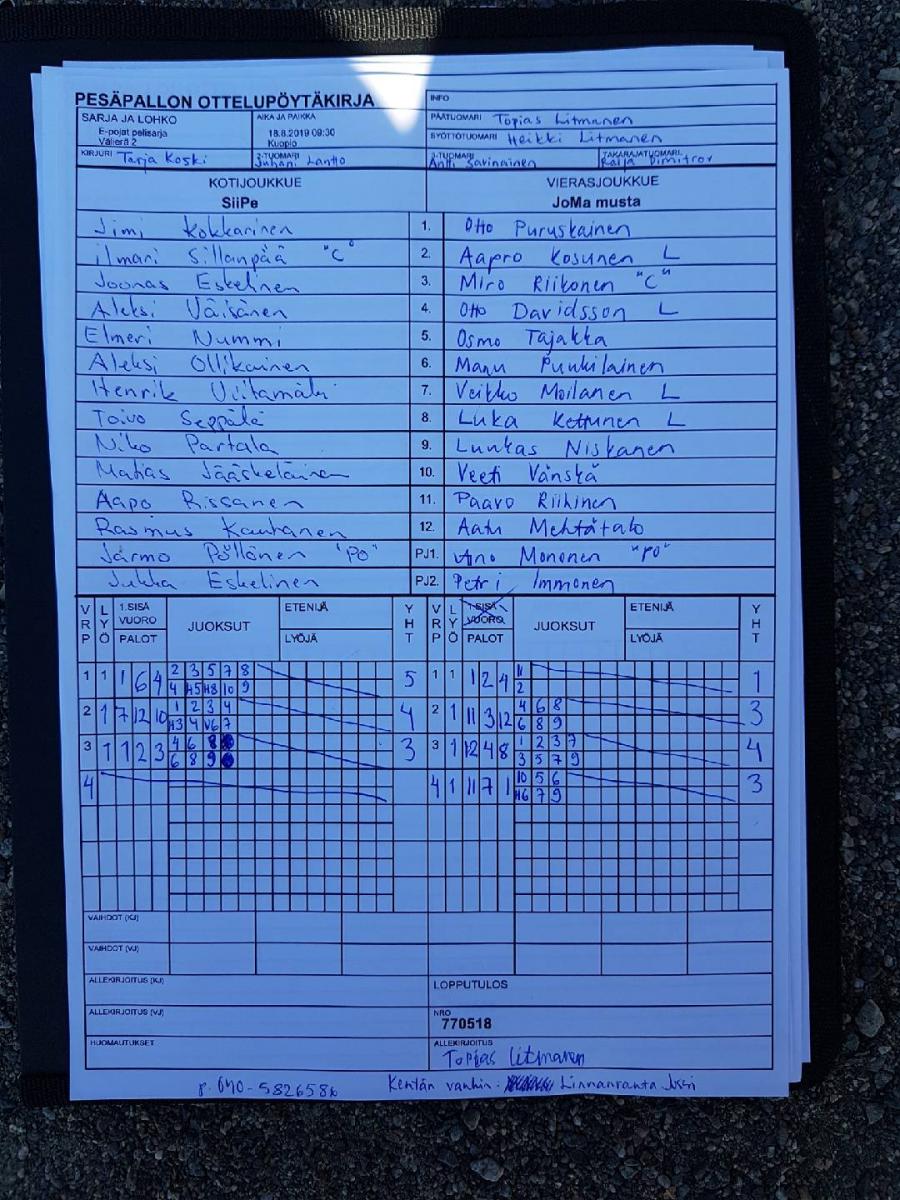 PESÄPALLON OTTELUPÖYTÄKIRJA
INFO
SARJA JA LOHKO
E-pojat pelisarja
Välierä 2
AIKA JA PAIKKA
18.8.2019 09:30
Kuopio
PÄÄTUOMARI Topias Litmanen
SYÖTTÖTUOMARI Heikki Litmanen
KIRJURI Tarja Koski
2-TUOMARI Juhani Lantto
3-TUOMARI Antti Savinainen
TAKARAJATUOMARI Kaija Dimitrov
KOTIJOUKKUE
SiiPe
VIERASJOUKKUE
JoMa musta
Jimi Kokkarinen 1. Otto Puruskainen
ilmari Sillanpää "C" 2. Aapro Kosunen L
Joonas Eskelinen 3. Miro Riikonen "C"
Aleksi Väisänen 4. Otto Davidsson L
Elmeri Nummi 5. Osmo Tajakka
Aleksi Ollikainen 6. Manu Puukilainen
Henrik Uitamäki 7. Veikko Moilanen L
Toivo Seppälä 8. Luka Kettunen L
Niko Partala 9. Luukas Niskanen
Matias Jääskeläinen 10. Veeti Vänskä
Aapo Rissanen 11. Paavo Riihinen
Rasmus Kauhanen 12. Aatu Mehtätalo
Jarmo Pöllänen "PO" PJ1. Arto Mononen "PO"
Jukka Eskelinen PJ2. Petri Immonen
VRP LYÖ 1.SISÄ VUORO PALOT JUOKSUT ETENIJÄ LYÖJÄ YHT VRP LYÖ 1.SISÄ VUORO PALOT JUOKSUT ETENIJÄ LYÖJÄ YHT
1 1 1 6 4 2 3 5 7 8 5 1 1 1 2 4 11 1
4 H5 H8 10 9 2
2 1 7 12 10 1 2 3 4 4 2 1 11 3 12 4 6 8 3
H3 4 V6 7 6 8 9
3 1 1 2 3 4 6 8 3 3 1 12 4 8 1 2 3 7 4
6 8 9 3 5 7 9
4 4 1 11 7 1 10 5 6 3
H6 7 9
VAIHDOT (KJ)
VAIHDOT (VJ)
ALLEKIRJOITUS (KJ)
LOPPUTULOS
ALLEKIRJOITUS (VJ)
NRO
770518
HUOMAUTUKSET
ALLEKIRJOITUS
Topias Litmanen
p. 040-5826586 Kentän vanhin: Linnanranta Jussi